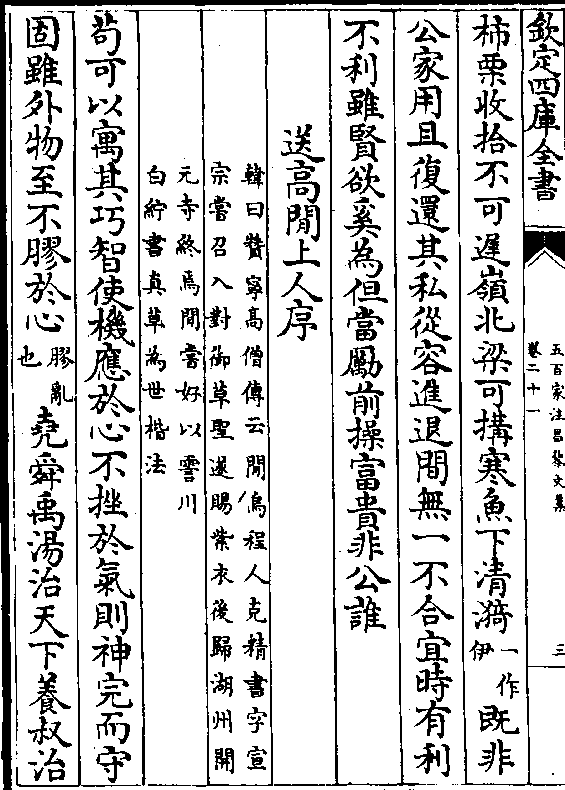 欽定四庫全書
五百家注昌黎文集
卷二十一
三
柿栗收拾不可遲嶺北梁可搆寒魚下清漪一作伊既非
公家用且復還其私從容進退間無一不合宜時有利
不利雖賢欲奚為但當勵前操富貴非公誰
送高閒上人序
韓曰贊寧高僧傳云閒烏程人克精書字宣
宗嘗召入對御草聖遂賜紫衣後歸湖州開
元寺終焉閒嘗好以霅川
白紵書真草為世楷法
苟可以寓其巧智使機應於心不挫於氣則神完而守
固雖外物至不膠於心膠亂也堯舜禹湯治天下養叔治